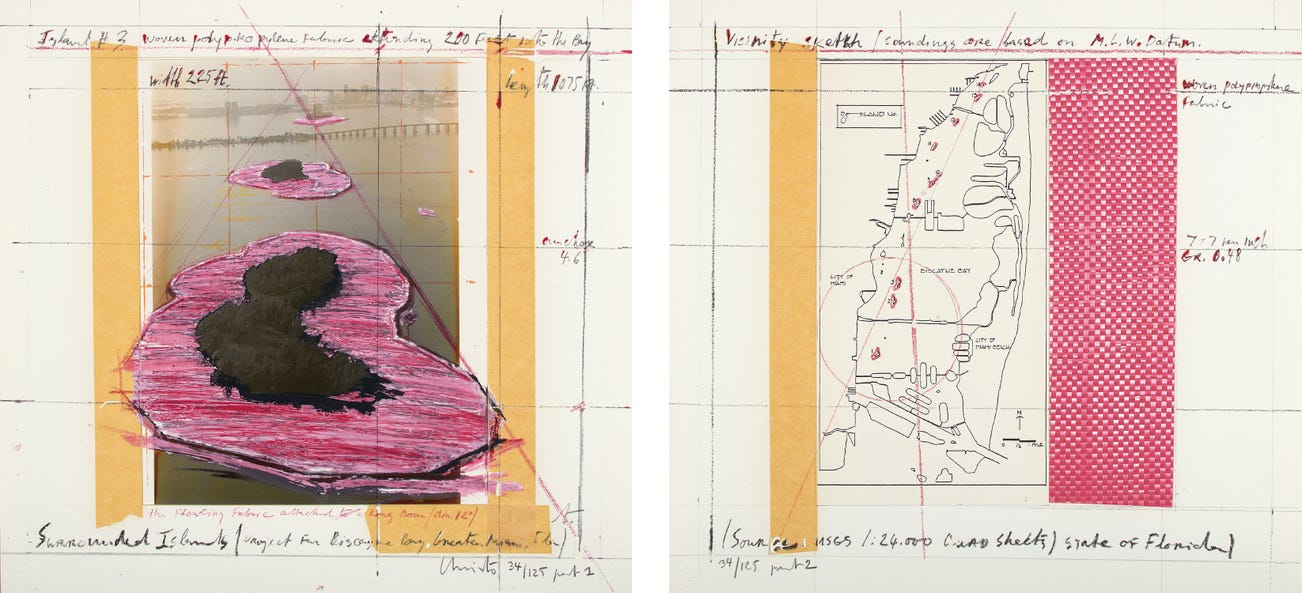 Island # 3 woven polypropylene Fabric extending 200 Feet into the Bay
width 225 ft.
length 1075 ft.
4.6
the Floating Fabric attached to Long Boom (dia. 12")
Surrounded Islands (Project For Biscayne Bay, Greater Miami, Fla)
Christo 34/125 part 1
Vicinity sketch / soundings are based on M.L.W. Datum.
woven polypropylene
Fabric
ISLAND No.
7 x 7 per inch
GR. 0.48
CITY OF
MIAMI
BISCAYNE BAY
CITY OF
MIAMI BEACH
N
0 ½ 1 MILE
(Source: USGS 1:24.000 Quad Sheets) State of Florida)
34/125 part 2